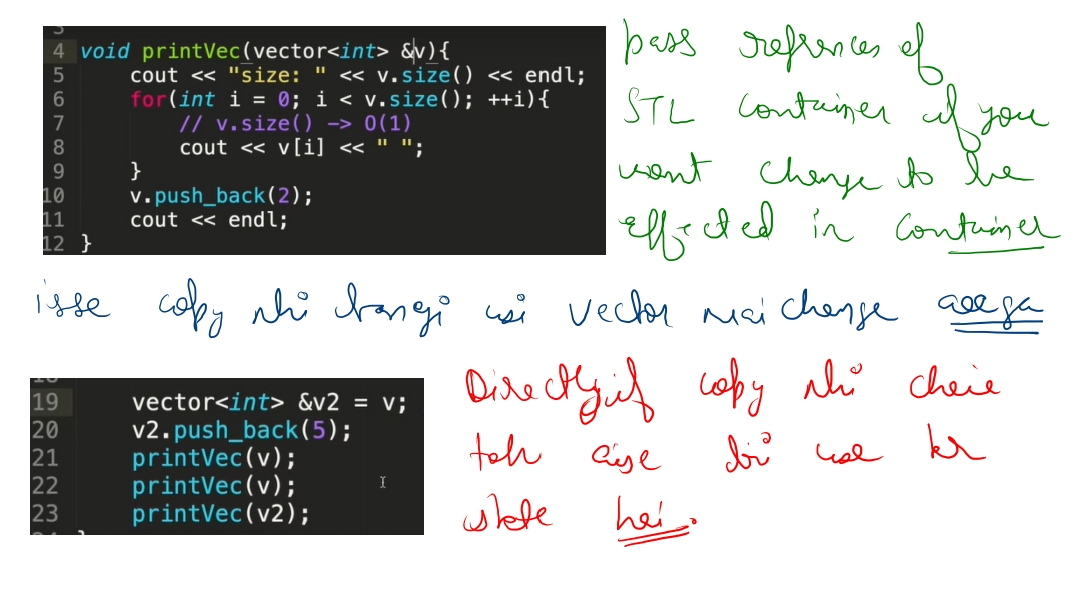 4 void printVec(vector<int> &v){
5 cout << "size: " << v.size() << endl;
6 for(int i = 0; i < v.size(); ++i){
7 // v.size() -> O(1)
8 cout << v[i] << " ";
9 }
10 v.push_back(2);
11 cout << endl;
12 }
pass refrences of
STL container if you
want change to be
effected in container
isse copy nhi banegi usi vector mai change aaega
19 vector<int> &v2 = v;
20 v2.push_back(5);
21 printVec(v);
22 printVec(v);
23 printVec(v2);
Directly if copy nhi cheie
toh aise bi use kr
skte hai.